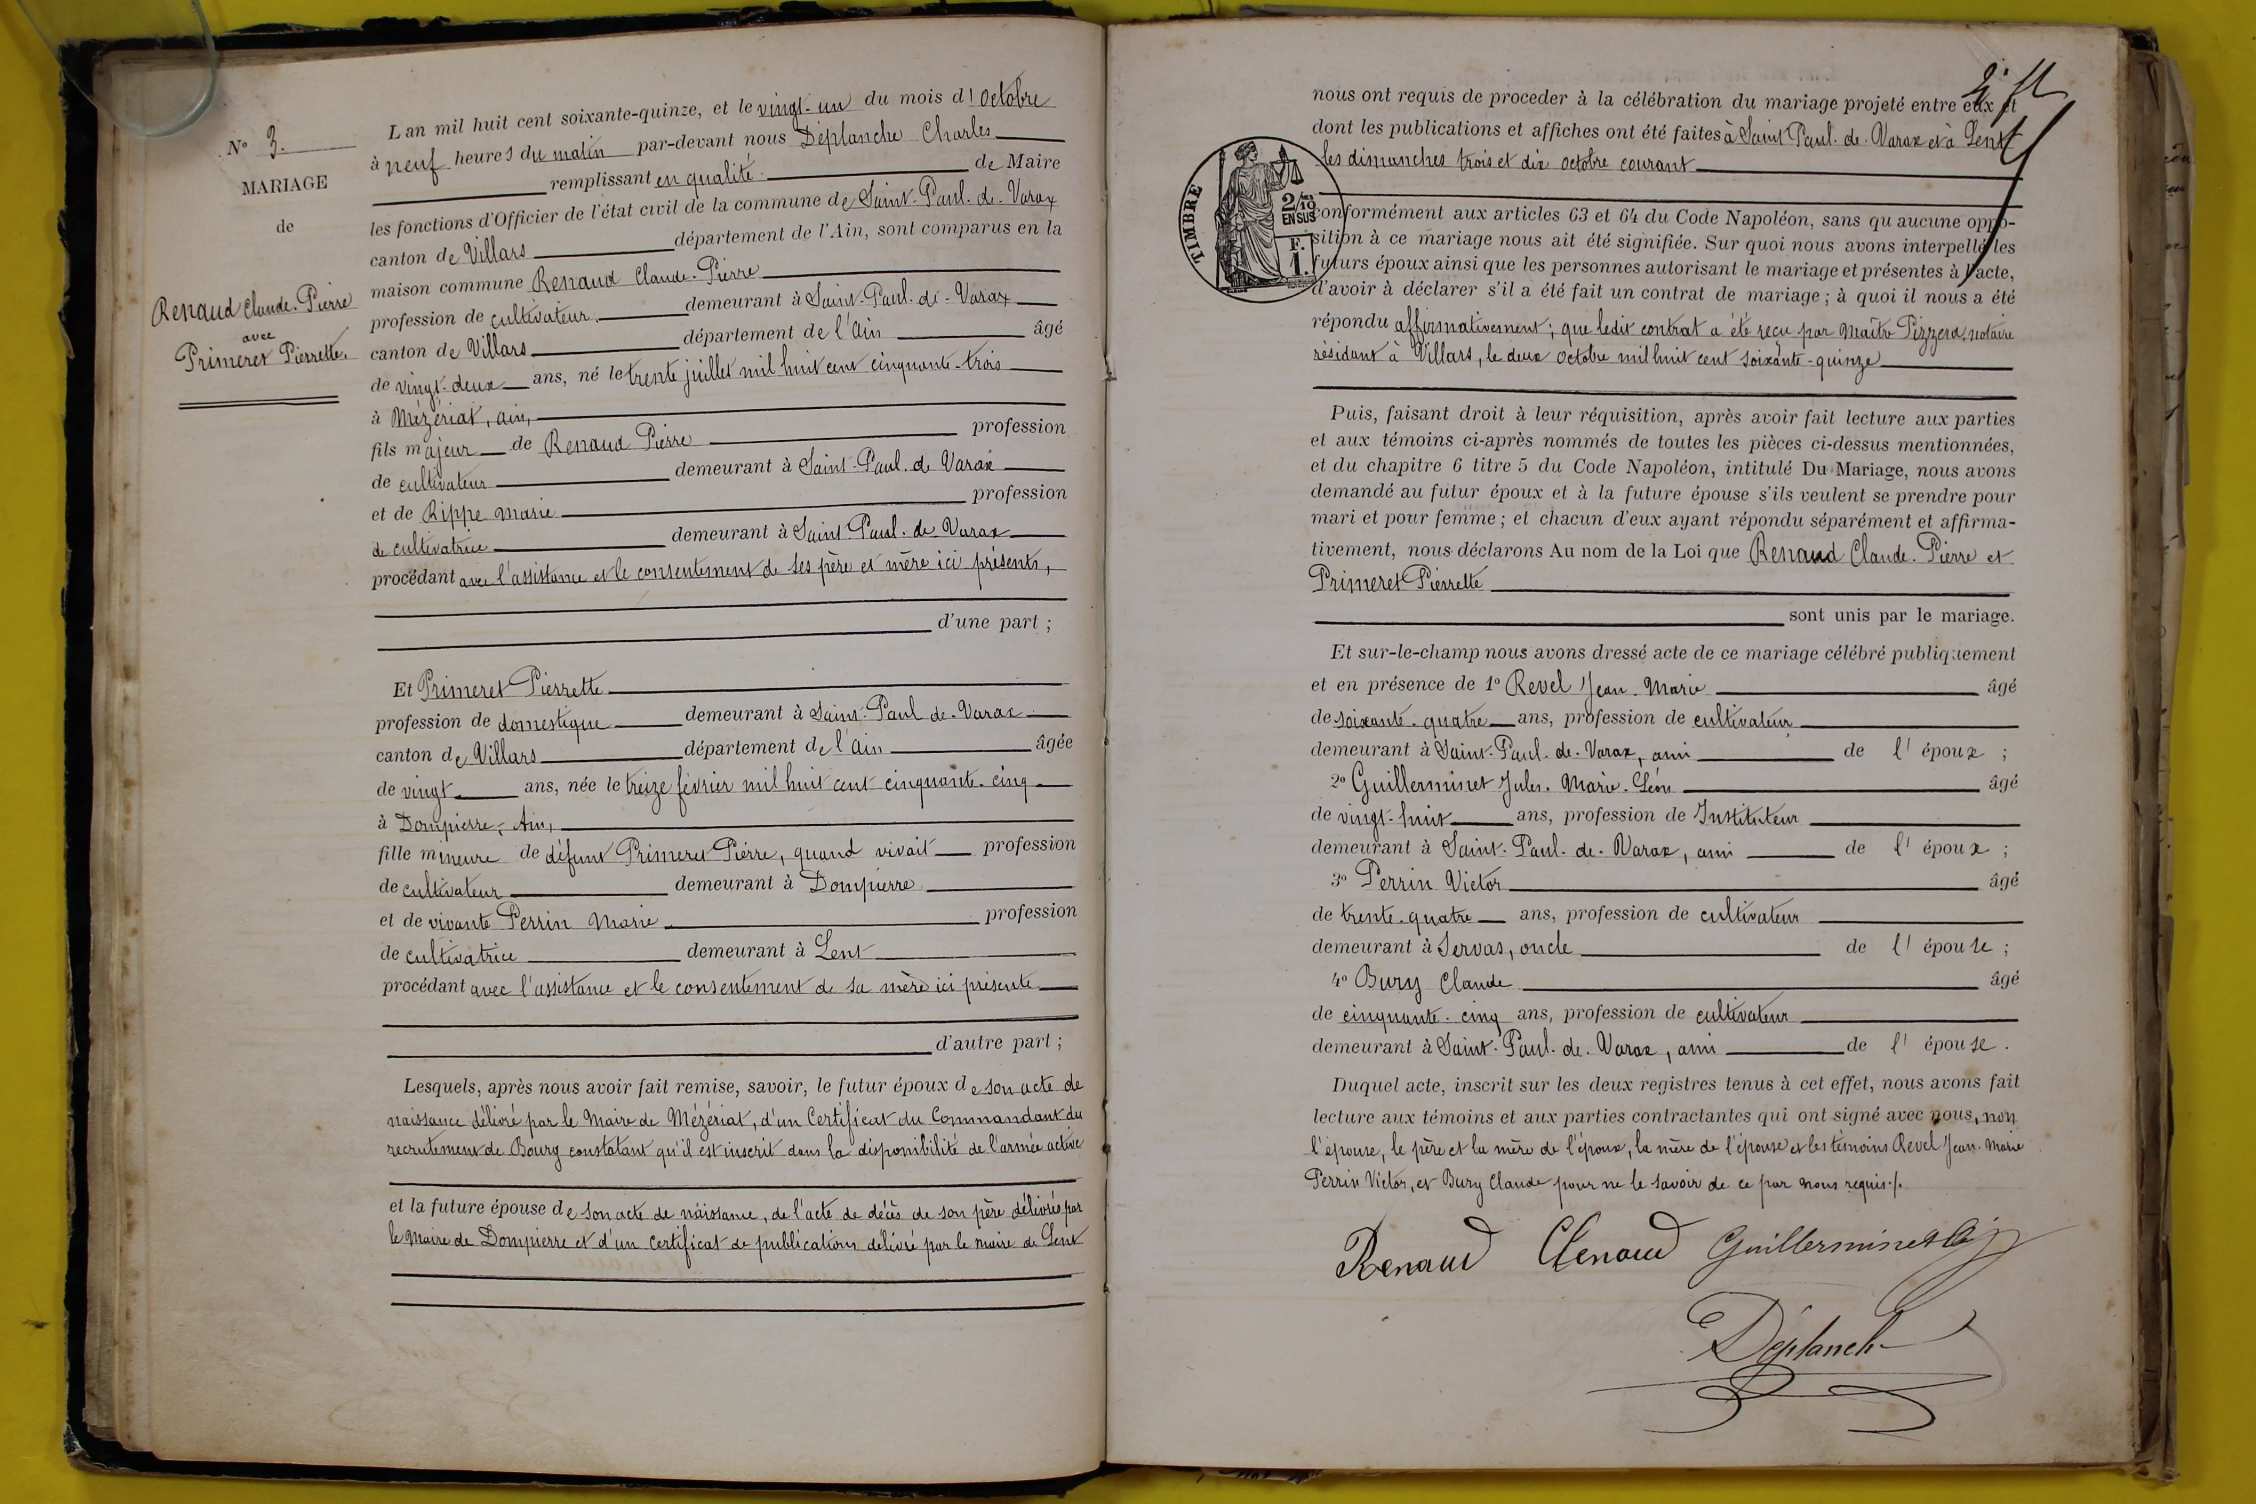 N° 3.
MARIAGE
de
Renaud Claude-Pierre
avec
Primeret Pierrette.
L an mil huit cent soixante-quinze, et le vingt-un du mois d'octobre
à neuf heures du matin par-devant nous Déplanche Charles
remplissant en qualité de Maire
les fonctions d'Officier de l'état civil de la commune de Saint-Paul-de-Varax
canton de Villars département de l'Ain, sont comparus en la
maison commune Renaud Claude-Pierre
profession de cultivateur demeurant à Saint-Paul-de-Varax
canton de Villars département de l'Ain âgé
de vingt-deux ans, né le trente juillet mil huit cent cinquante-trois
à Mézériat, ain,
fils majeur de Renaud Pierre profession
de cultivateur demeurant à Saint-Paul-de Varax
et de Rippe Marie profession
de cultivatrice demeurant à Saint-Paul-de-Varax
procédant avec l'assistance et le consentement de ses père et mère ici présents,
d'une part ;
Et Primeret Pierrette
profession de domestique demeurant à Saint-Paul-de-Varax
canton de Villars département de l'Ain âgée
de vingt ans, née le treize février mil huit cent cinquante-cinq
à Dompierre, Ain,
fille mineure de défunt Primeret Pierre, quand vivait profession
de cultivateur demeurant à Dompierre
et de vivante Perrin Marie profession
de cultivatrice demeurant à Lent
procédant avec l'assistance et le consentement de sa mère ici présente
d'autre part ;
Lesquels, après nous avoir fait remise, savoir, le futur époux de son acte de
naissance délivré par le Maire de Mézériat, d'un Certificat du Commandant du
recrutement de Bourg constatant qu'il est inscrit dans la disponibilité de l'armée active
et la future épouse de son acte de naissance, de l'acte de décès de son père délivrés par
le Maire de Dompierre et d'un certificat de publications délivré par le maire de Lent
nous ont requis de proceder à la célébration du mariage projeté entre eux et
dont les publications et affiches ont été faites à Saint-Paul-de-Varax et à Lent
les dimanches trois et dix octobre courant
TIMBRE
2/10
EN SUS
F.
1.
conformément aux articles 63 et 64 du Code Napoléon, sans qu aucune oppo-
sition à ce mariage nous ait été signifiée. Sur quoi nous avons interpellé les
futurs époux ainsi que les personnes autorisant le mariage et présentes à l'acte,
d'avoir à déclarer s'il a été fait un contrat de mariage ; à quoi il nous a été
répondu affirmativement ; que ledit contrat a été reçu par Maître Pizzera, notaire
résidant à Villars, le deux octobre mil huit cent soixante-quinze
Puis, faisant droit à leur réquisition, après avoir fait lecture aux parties
et aux témoins ci-après nommés de toutes les pièces ci-dessus mentionnées,
et du chapitre 6 titre 5 du Code Napoléon, intitulé Du Mariage, nous avons
demandé au futur époux et à la future épouse s'ils veulent se prendre pour
mari et pour femme ; et chacun d'eux ayant répondu séparément et affirma-
tivement, nous déclarons Au nom de la Loi que Renaud Claude-Pierre et
Primeret Pierrette
sont unis par le mariage.
Et sur-le-champ nous avons dressé acte de ce mariage célébré publiquement
et en présence de 1° Revel Jean-Marie âgé
de soixante-quatre ans, profession de cultivateur
demeurant à Saint-Paul-de-Varax, ami de l'époux ;
2° Guillerminet Jules-Marie-Léon âgé
de vingt-huit ans, profession de Instituteur
demeurant à Saint-Paul-de-Varax, ami de l'époux ;
3° Perrin Victor âgé
de trente-quatre ans, profession de cultivateur
demeurant à Servas, oncle de l'épouse ;
4° Bury Claude âgé
de cinquante-cinq ans, profession de cultivateur
demeurant à Saint-Paul-de-Varax, ami de l'épouse.
Duquel acte, inscrit sur les deux registres tenus à cet effet, nous avons fait
lecture aux témoins et aux parties contractantes qui ont signé avec nous, non
l'épouse, le père et la mère de l'époux, la mère de l'épouse et les témoins Revel Jean-Marie
Perrin Victor, et Bury Claude pour ne le savoir de ce par nous requis./.
Renaud Renaud Guillerminet
Déplanche